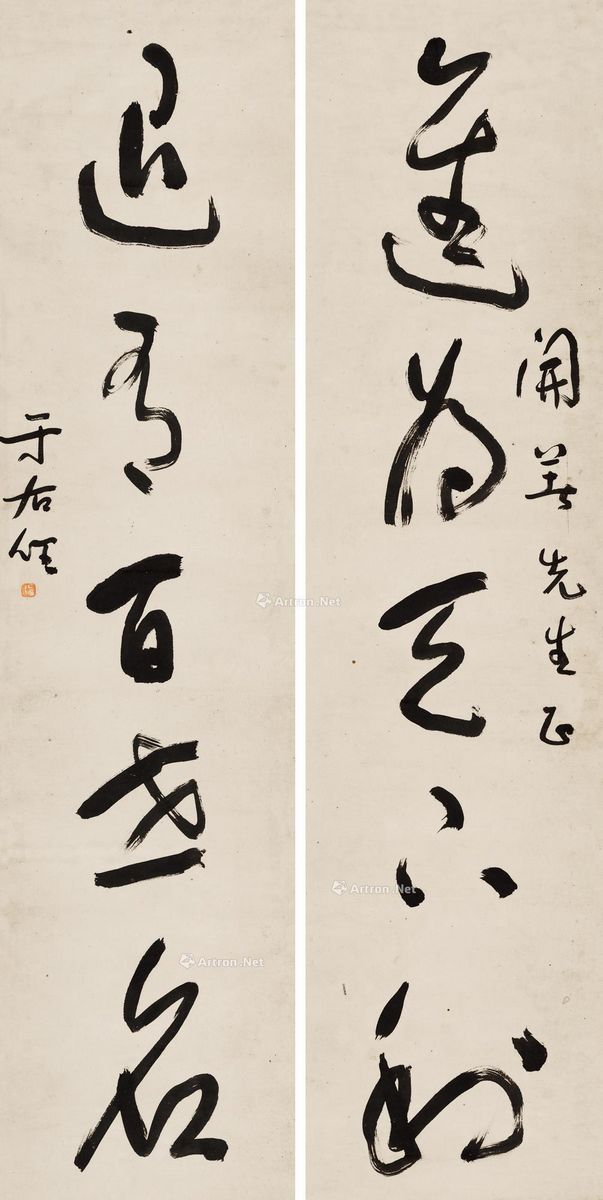 開先生正
進為天下利
退有百世名
于右任
Artron.Net
Artron.Net
Artron.Net